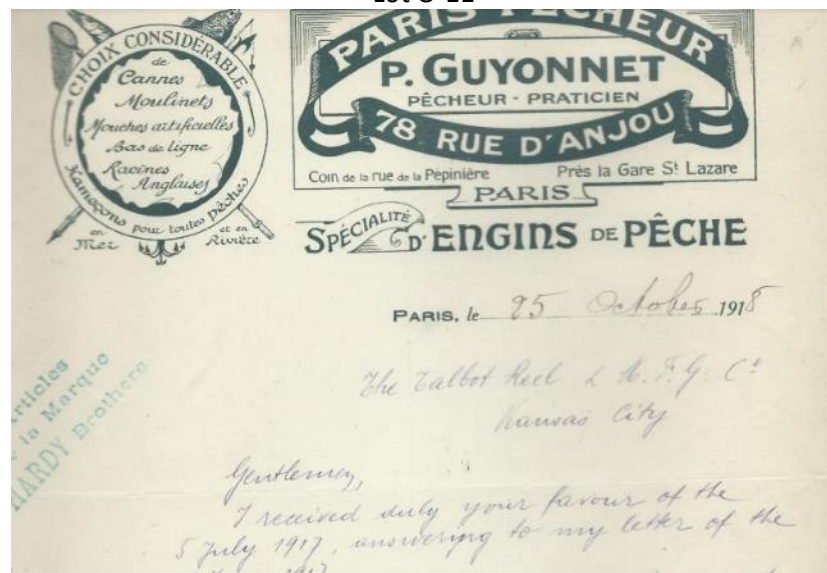 CHOIX CONSIDÉRABLE
de
Cannes
Moulinets
Mouches artificielles
Bas de ligne
Racines
Anglaises
Hameçons pour toutes pêches
en Mer et en Rivière
PARIS-PÊCHEUR
P. GUYONNET
PÊCHEUR - PRATICIEN
78 RUE D'ANJOU
Coin de la rue de la Pépinière Près la Gare St Lazare
PARIS
SPÉCIALITÉ D'ENGINS DE PÊCHE
PARIS, le 25 October 1918
Articles
la Marque
HARDY Brothers
The Talbot Reel & M.F.G. Co
Kansas City
Gentlemen,
I received duly your favour of the
5 July 1917, answering to my letter of the
1917